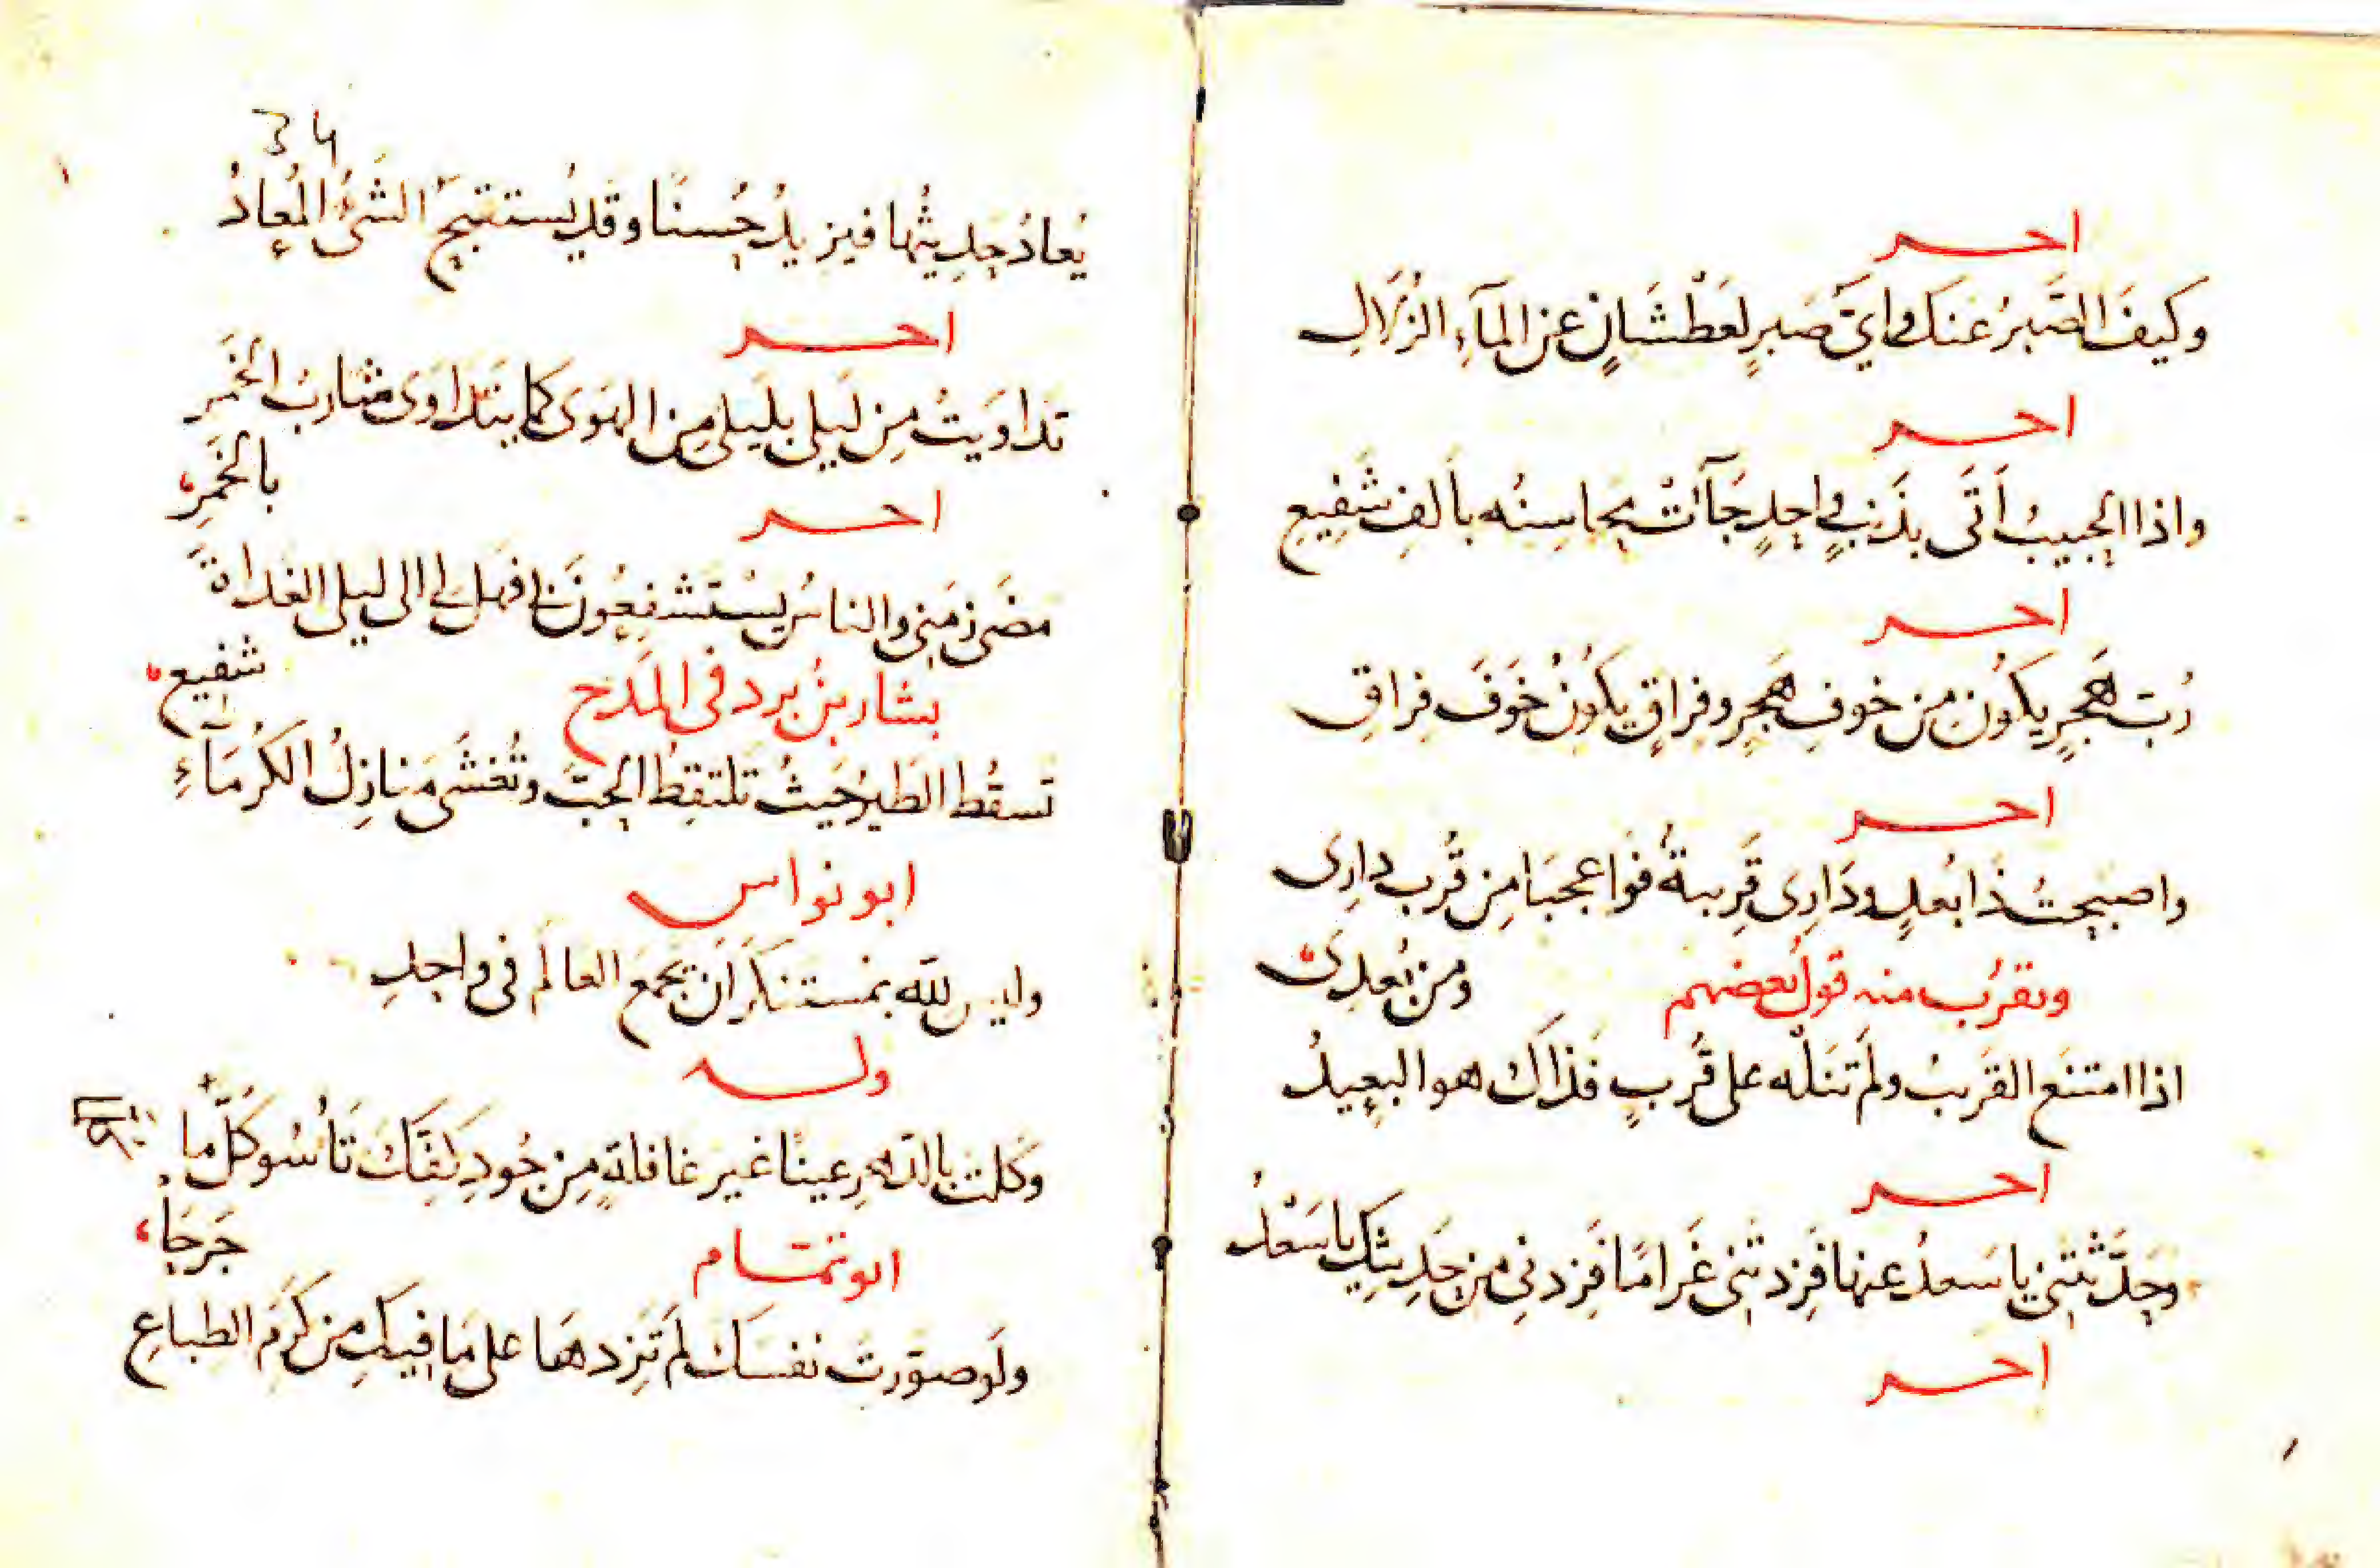 اخر
وكيفَ الصَّبرُ عَنكَ وايُّ صَبرٍ لعَطْشَانٍ عن المَآءِ الزُلَالِ
اخر
واذا الحبيبُ أَتَى بذَنبٍ واحِدٍ جَآءَتْ محاسِنُه بأَلفِ شَفِيعِ
اخر
رُبّ هَجرٍ يكوُن مِن خوفِ هَجرٍ وفِراقٍ يكُونُ خَوَفَ فِراقِ
اخر
واصبحتُ ذَا بُعدٍ ودَارِى قَرِيبةٌ فوَاعجبَا مِن قُرب دارِى
ومن بُعدِىَ
ويقرُب منه قولُ بعضهم
اذا امتنَع القَرِيبُ ولَم تَنَلْه على قُربٍ فذَاكَ هو البعِيدُ
اخر
وحَدَّثتَنِى يا سَعدُ عنها فَزِدتَنِى غَرامًا فَزِدنِى من حَدِيثِكَ يا سَعْدُ
اخر
34
يُعادُ حدِيثُها فيزيدُ حُسنًا وقَد يُستقبَحُ الشَىءُ المُعادُ
اخر
تَداوَيتُ مِن لَيلى بلَيلى مِن الهَوَى كما يتَداوَى شاربُ الخَمرِ
بالخَمرِ
اخر
مضَى زمَنِى والناسُ يَستَشفِعُونَ بى فهل لى الى ليلى الغداةَ
شفيع
بشار بنُ برد فى المَدح
تسقُط الطَيرُ حَيثُ تَلتقِطُ الحَبَّ وتُغشَى مَنازِلُ الكُرَمَآءِ
ابو نواس
وليس للّه بمستنكَرٍ اَن يجمَع العالَم فى واحِدِ
وله
وكلت بالدَهرِ عينًا غير غافلةٍ مِن جُودِ كفّكَ تَأسُو كلَّما
جَرحَا
ابو تمّام
ولَو صوّرتَ نفسَكَ لَم تَزِدهَا على مَا فِيكَ مِن كَرَمِ الطباعِ